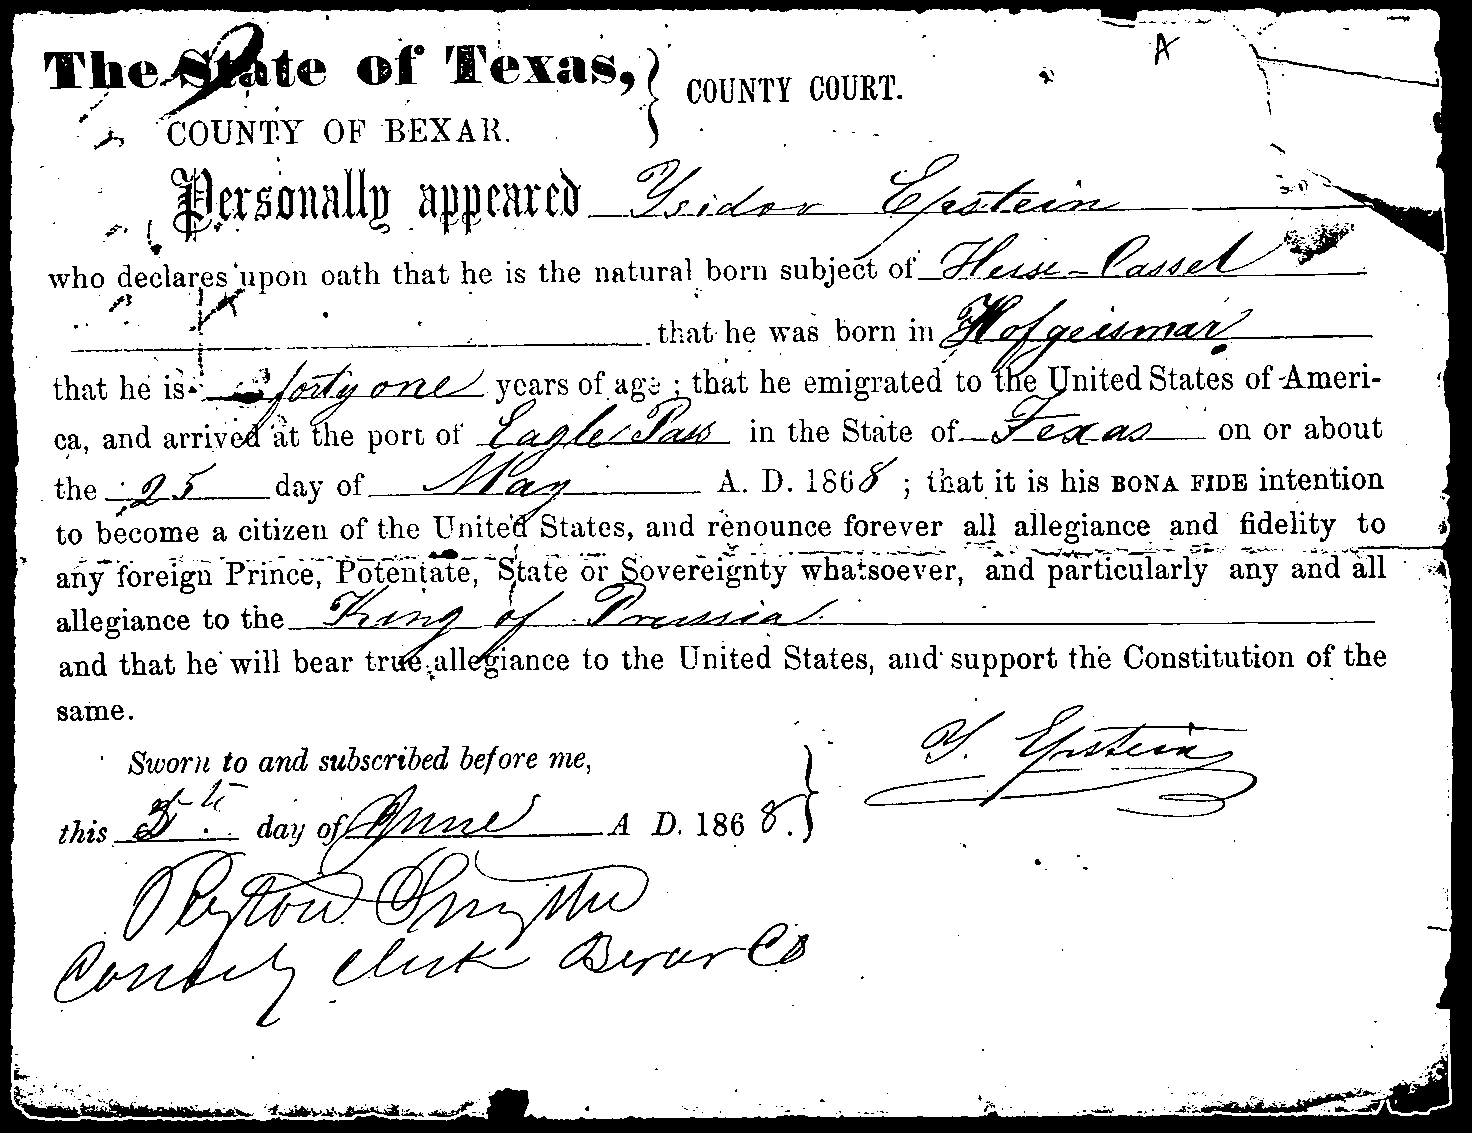 A
The State of Texas,
COUNTY COURT.
COUNTY OF BEXAR.
Personally appeared Ysidor Epstein
who declares upon oath that he is the natural born subject of Hesse-Cassel
that he was born in Hofgeismar
that he is forty one years of age; that he emigrated to the United States of Ameri-
ca, and arrived at the port of Eagle Pass in the State of Texas on or about
the 25 day of May A. D. 1868; that it is his BONA FIDE intention
to become a citizen of the United States, and renounce forever all allegiance and fidelity to
any foreign Prince, Potentate, State or Sovereignty whatsoever, and particularly any and all
allegiance to the King of Prussia
and that he will bear true allegiance to the United States, and support the Constitution of the
same.
Y. Epstein
Sworn to and subscribed before me,
this day of June A D. 1868.
Peyton Smythe
County Clerk Bexar Co